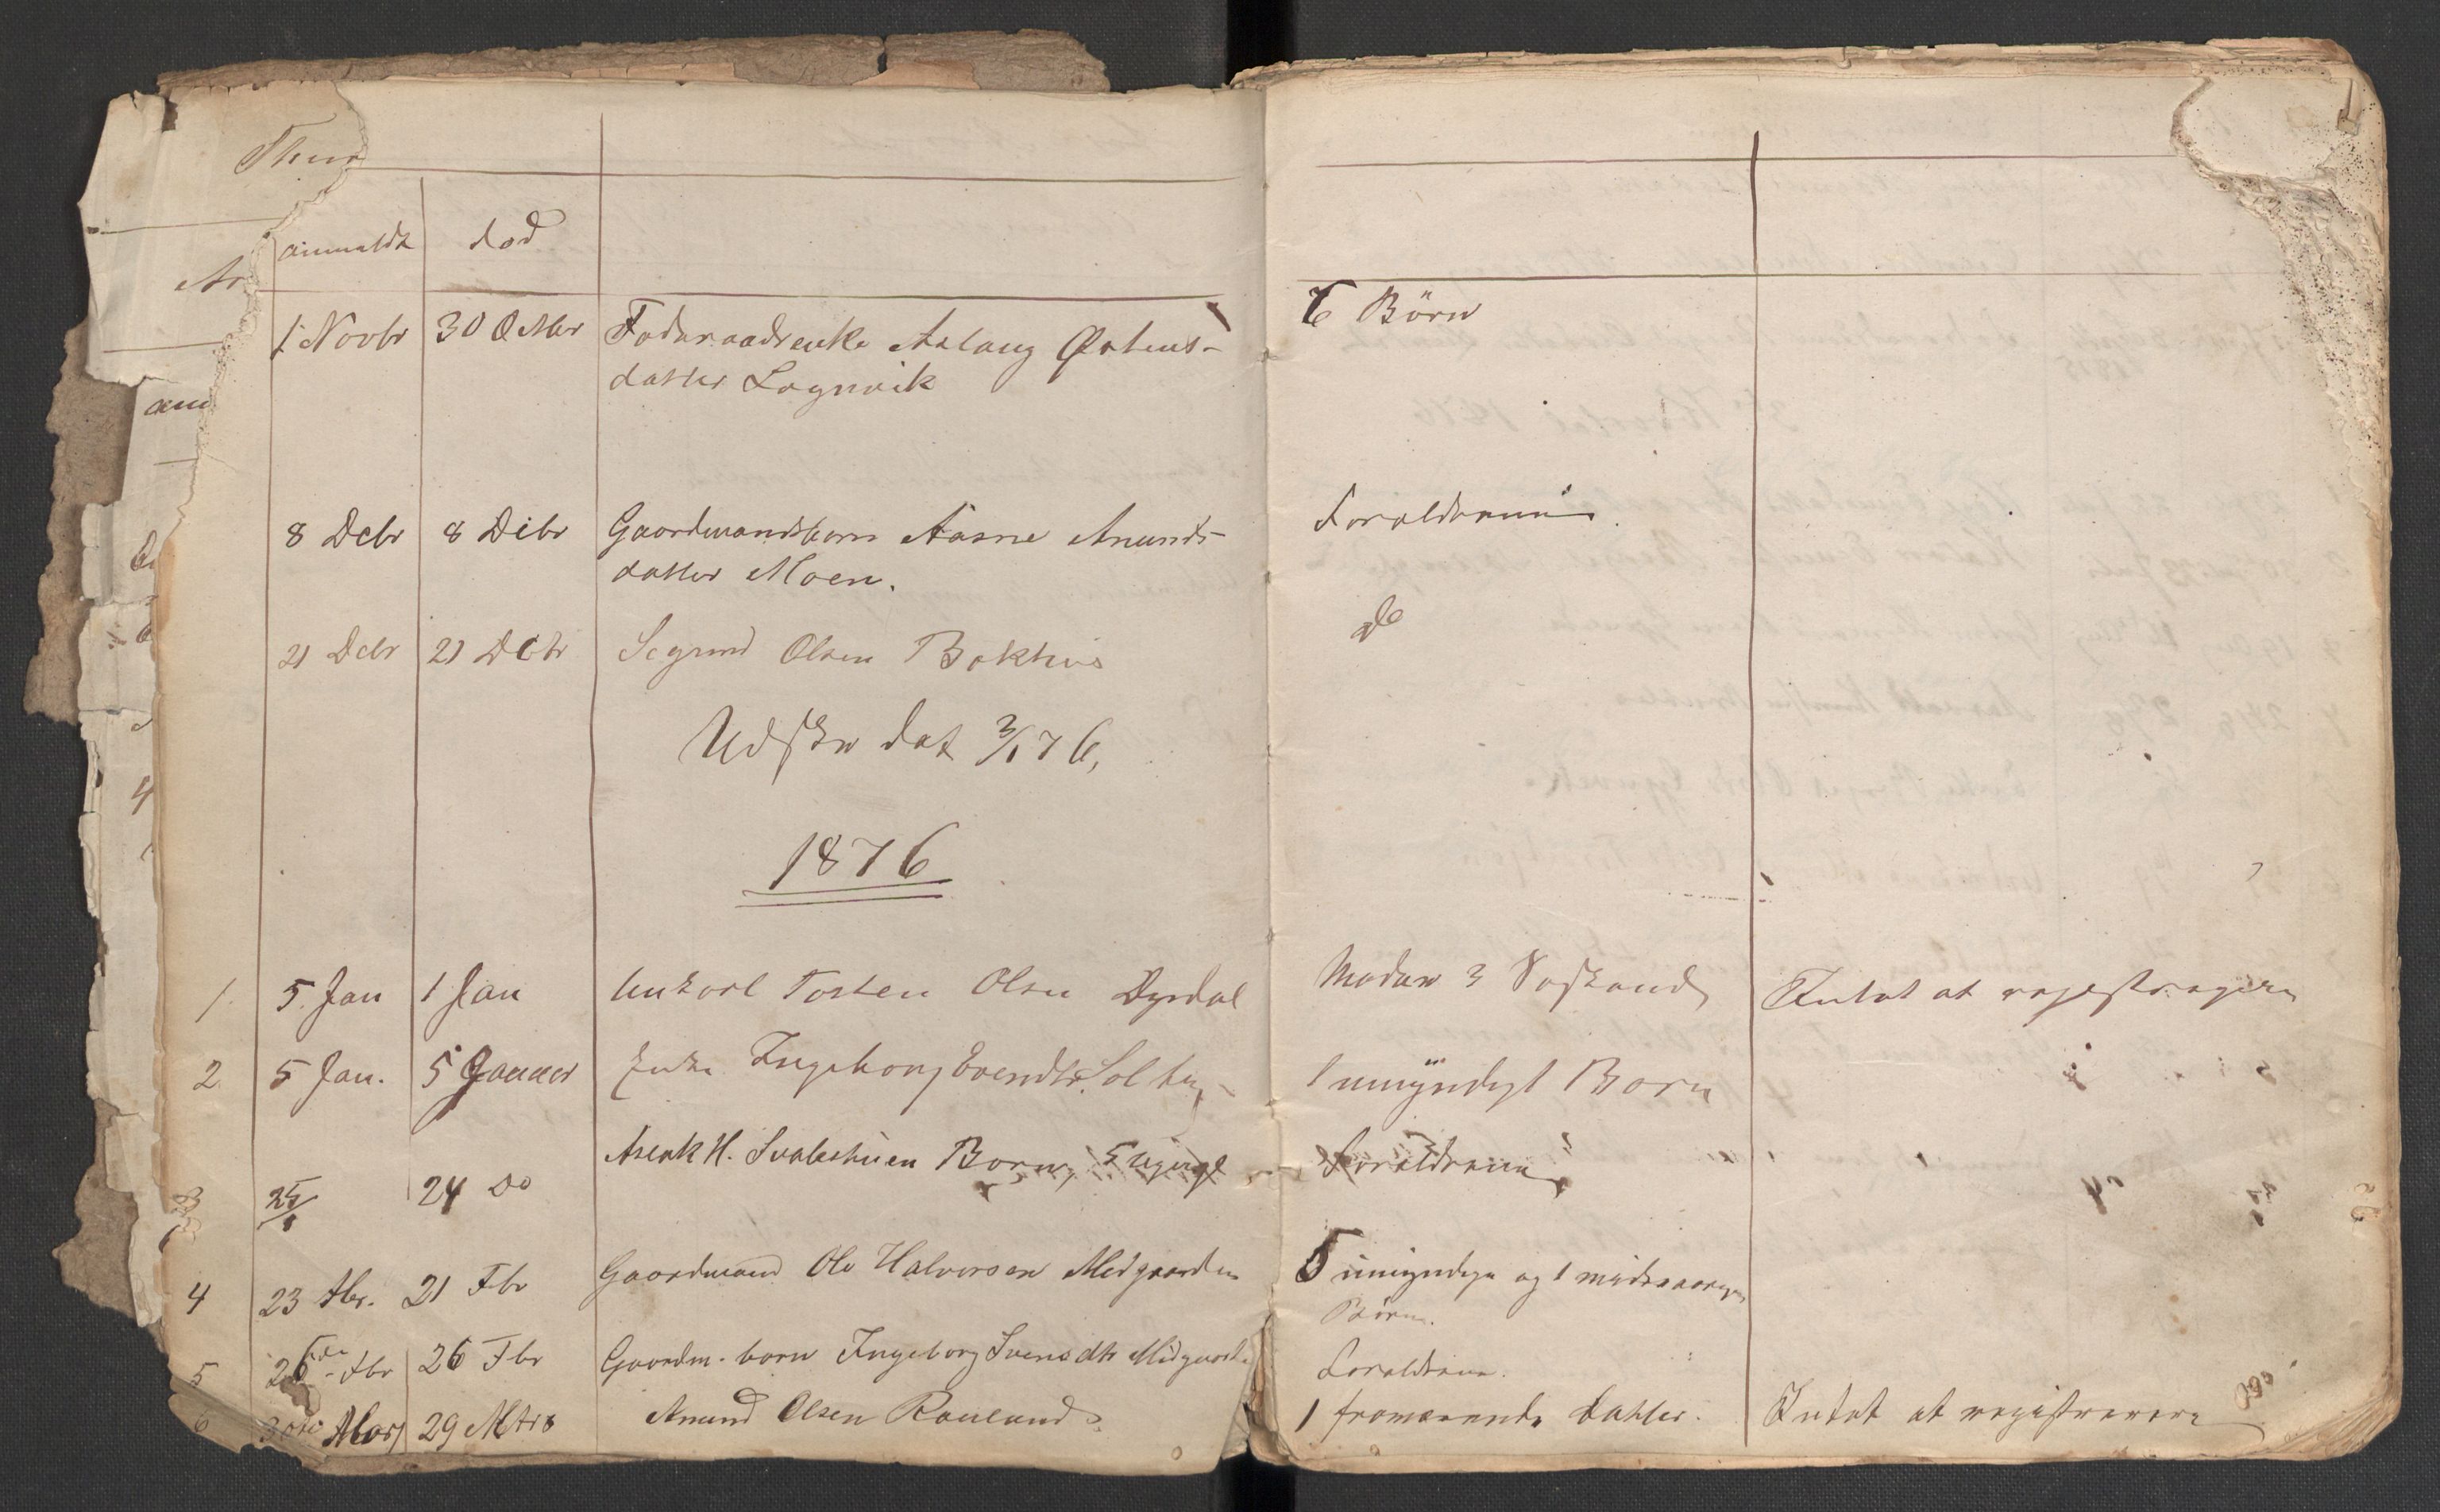 anmeldt død
1 Novbr 30 Octbr Foderaadsenke Aslaug Østens-
datter Lognvik
6 Börn
8 Debr 8 Debr Gaardmandsbarn Aasne Anunds-
datter Moen.
Forældrene.
21 Debr 21 Debr Segrund Olsen Bakhus
Do
Udskr dat 3/1 76,
1876
1. 5. Jan 1 Jan Unkarl Tosten Olsen Dyrdal
Moder 3 Søskende
Intet at regestrere
2 5 Jan. 5 Januar Enke Ingeborg Evendtr.
1 umyndigt Barn
3 25/1 24 Do Aslak H. Svalestuen Barn
Forældrene
4 23 Fbr. 21 Fbr Gaardmand Ole Halvorsen Midgaarden
5 umyndige og 1 mindreaarige
Börn.
5 26de Fbr 26 Fbr Gaardm. barn Ingeborg Svensdtr Midgaarde
Forældrene.
6 30te Mars 29 Mars Anund Olsen Rauland
1 datter.
Intet at registrerere